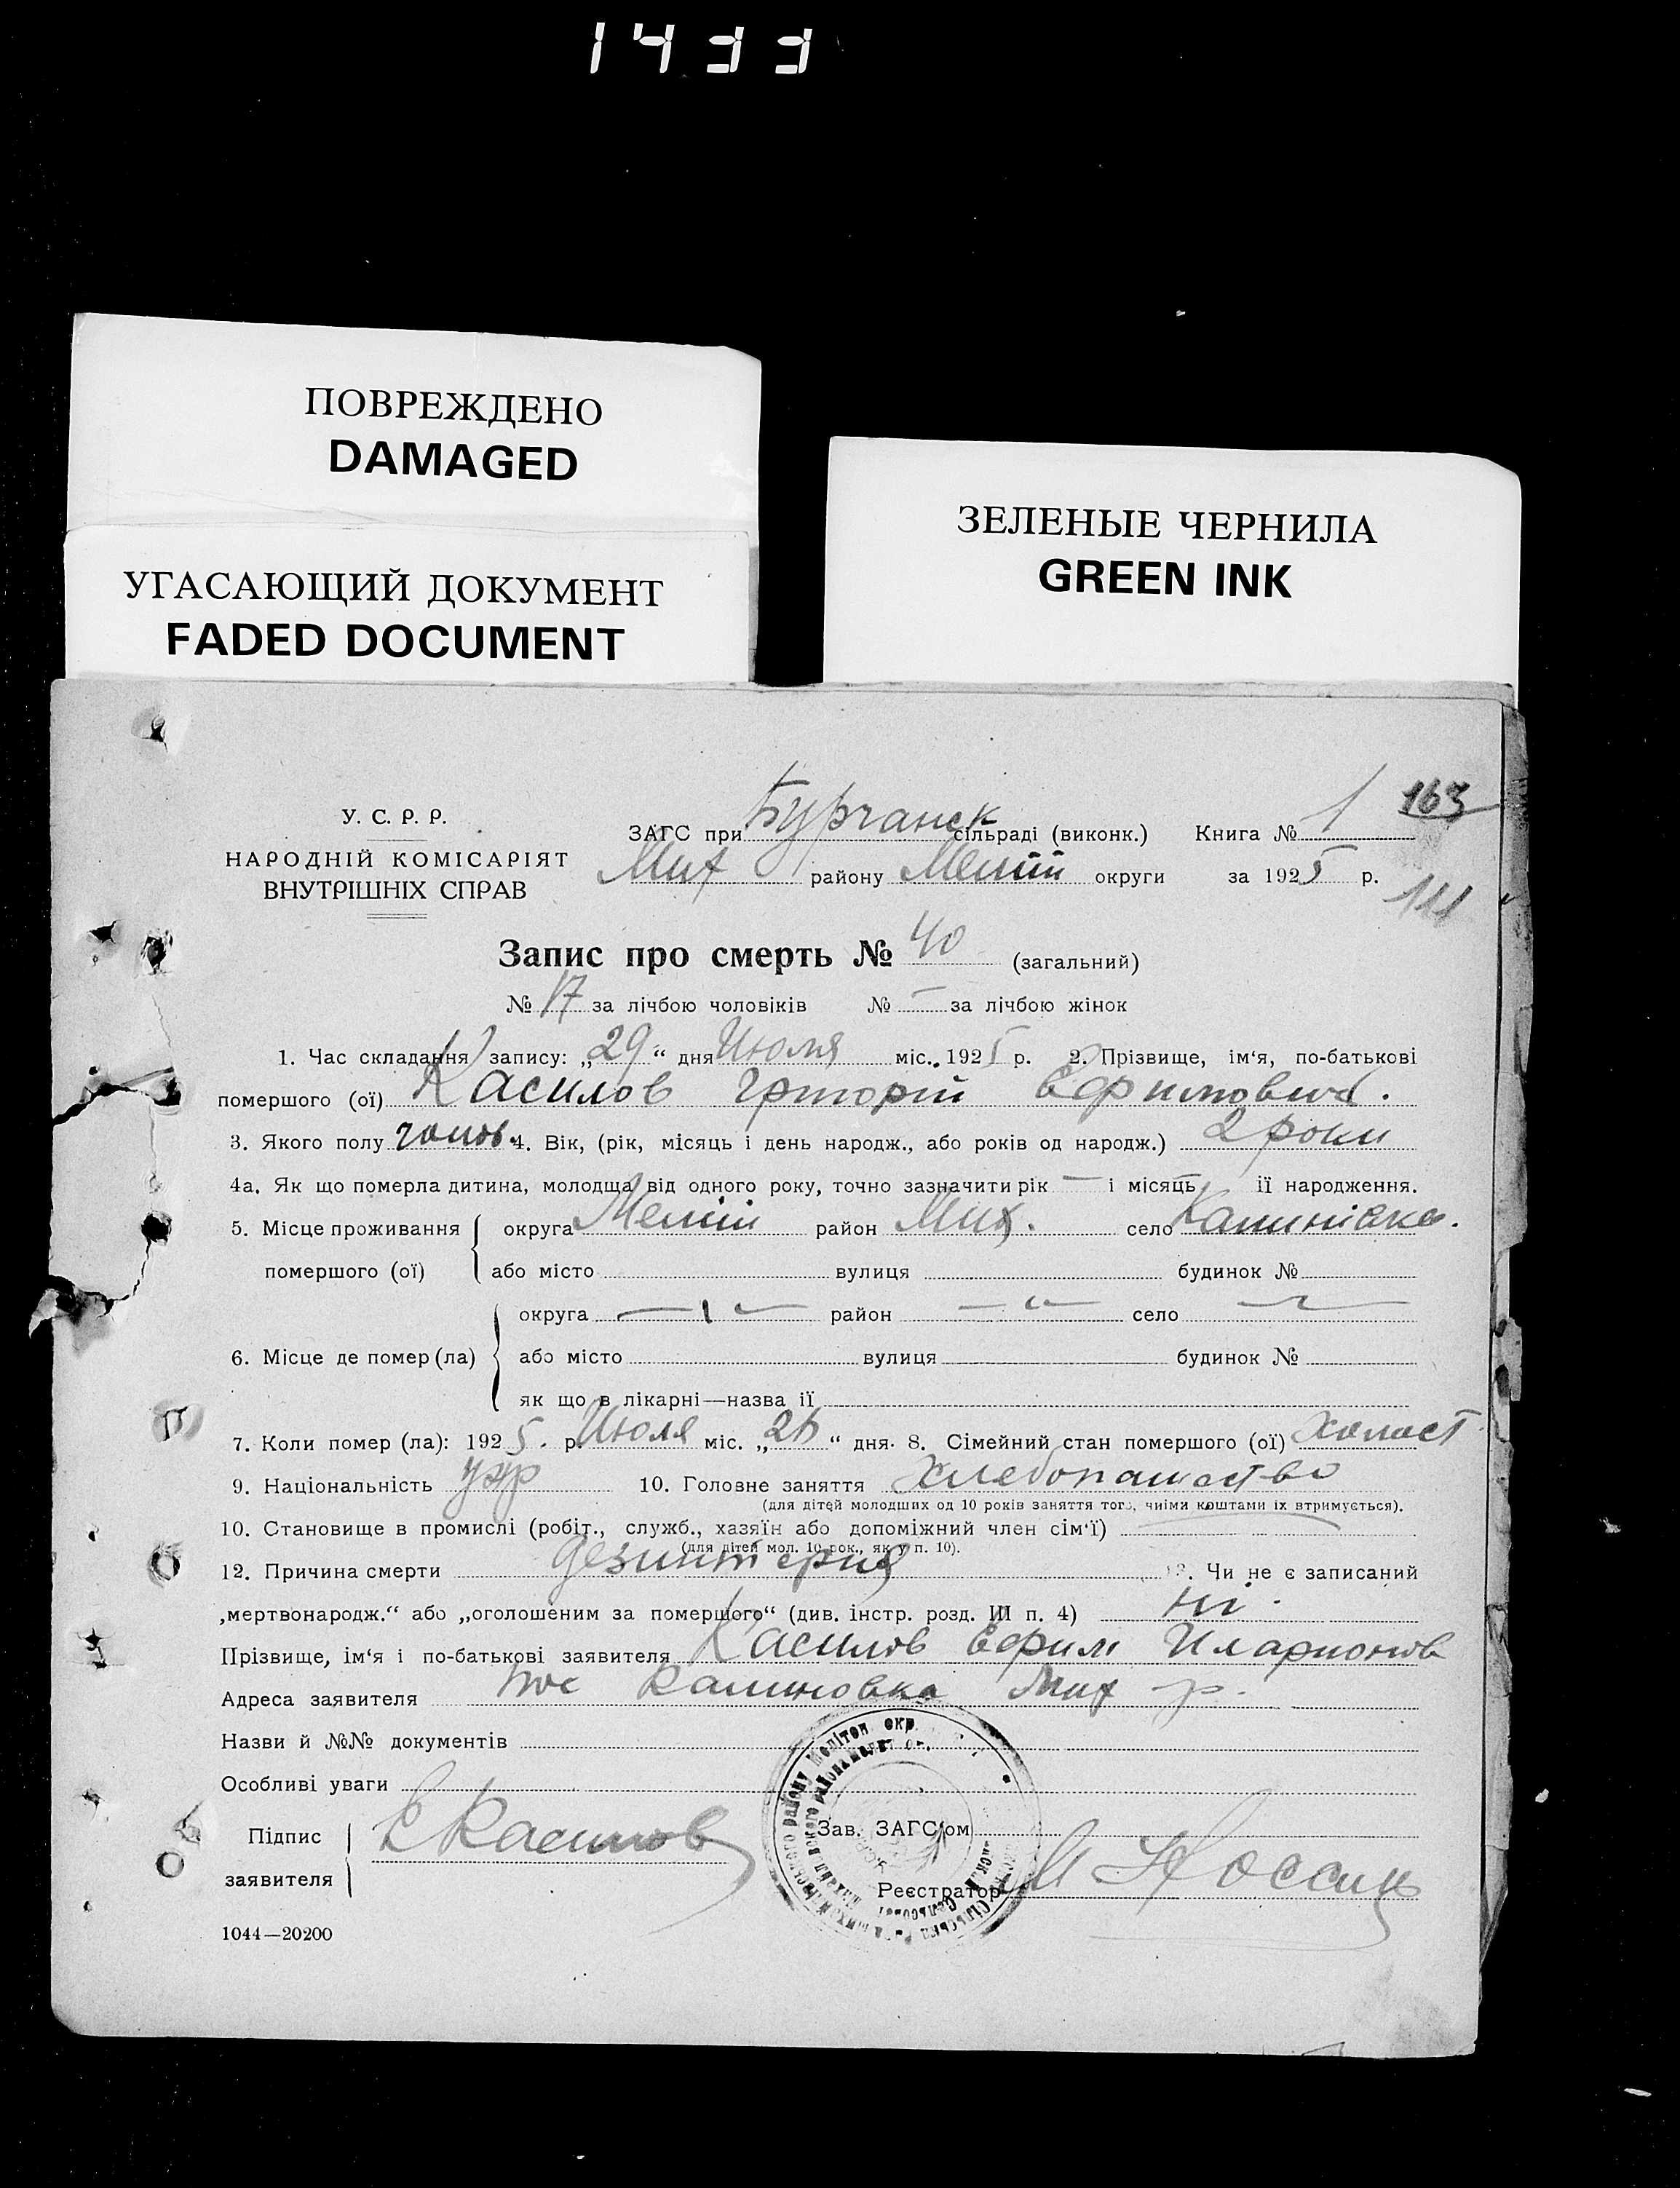 1433
ПОВРЕЖДЕНО
DAMAGED
УГАСАЮЩИЙ ДОКУМЕНТ
FADED DOCUMENT
ЗЕЛЕНЫЕ ЧЕРНИЛА
GREEN INK
У. С. Р. Р.
НАРОДНІЙ КОМІСАРІЯТ
ВНУТРІШНІХ СПРАВ
163
ЗАГС при Бурчанск сільраді (виконк.) Книга № 1
Мих району Меліт округи за 1925 р.
111
Запис про смерть № 40 (загальний)
№ 17 за лічбою чоловіків № — за лічбою жінок
1. Час складання запису: „29“ дня Июля міс. 1925 р. 2. Прізвище, ім‘я, по-батькові
помершого (ої) Касилов Григорій Ефимович.
3. Якого полу чолов. 4. Вік, (рік, місяць і день народж., або років од народж.) 2 роки
4а. Як що померла дитина, молодща від одного року, точно зазначити рік — і місяць — ії народження.
5. Місце проживання помершого (ої) округа Меліт район Мих. село Калинівка.
або місто вулиця будинок №
округа —〃— район —〃— село —〃—
6. Місце де помер (ла) або місто вулиця будинок №
як що в лікарні—назва ії
7. Коли помер (ла): 1925. р. Июля міс. „26“ дня. 8. Сімейний стан помершого (ої) холост
9. Національність укр 10. Головне заняття Хлебопашество
(для дітей молодших од 10 років заняття того, чиїми коштами їх втримується).
10. Становище в промислі (робіт., служб., хазяїн або допоміжний член сім‘ї)
(для дітей мол. 10 рок., як у п. 10).
12. Причина смерти дезинтерия 13. Чи не є записаний
„мертвонародж.“ або „оголошеним за помершого“ (див. інстр. розд. III п. 4) ні.
Прізвище, ім‘я і по-батькові заявителя Касилов Ефим Иларионов
Адреса заявителя пос Калиновка Мих р.
Назви й №№ документів
Особливі уваги
Підпис заявителя Е Касилов
Зав. ЗАГС‘ом
Реєстратор
1044—20200